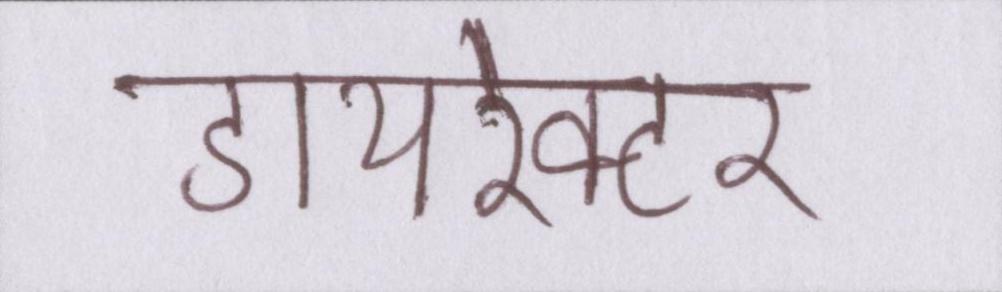 डायरेक्टर